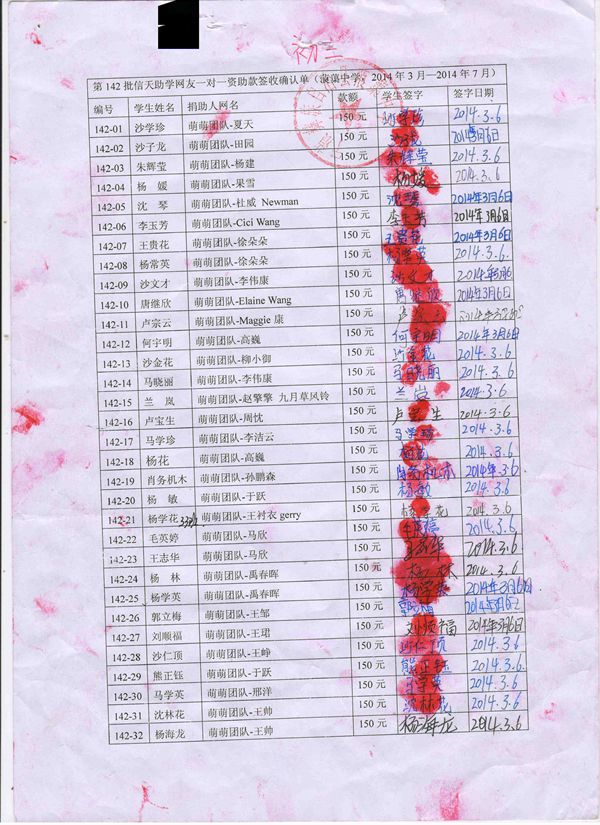 初三
第 142 批信天助学网友一对一资助款签收确认单（蒗蕖中学，2014 年 3 月—2014 年 7 月）
编号 学生姓名 捐助人网名 款额 学生签字 签字日期
142-01 沙学珍 萌萌团队-夏天 150 元 沙学珍 2014.3.6
142-02 沙子龙 萌萌团队-田园 150 元 沙子龙 2014年3月6日
142-03 朱辉莹 萌萌团队-杨建 150 元 朱辉莹 2014.3.6
142-04 杨 媛 萌萌团队-果雪 150 元 杨媛 2014.3.6
142-05 沈 琴 萌萌团队-杜威 Newman 150 元 沈琴 2014年3月6日
142-06 李玉芳 萌萌团队-Cici Wang 150 元 李玉芳 2014年3月6日
142-07 王贵花 萌萌团队-徐朵朵 150 元 王贵花 2014年3月6日
142-08 杨常英 萌萌团队-徐朵朵 150 元 杨常英 2014.3.6.
142-09 沙文才 萌萌团队-李伟康 150 元 沙文才 2014年3月6
142-10 唐继欣 萌萌团队-Elaine Wang 150 元 唐继欣 2014年3月6日
142-11 卢宗云 萌萌团队-Maggie 康 150 元 卢
142-12 何宇明 萌萌团队-高巍 150 元 何宇明 2014年3月6日
142-13 沙金花 萌萌团队-柳小御 150 元 沙金花 2014.3.6.
142-14 马晓丽 萌萌团队-李伟康 150 元 马晓丽 2014.3.6
142-15 兰 岚 萌萌团队-赵擎擎 九月草风铃 150 元 兰岚 2014.3.6
142-16 卢宝生 萌萌团队-周忱 150 元 卢宝生 2014.3.6
142-17 马学珍 萌萌团队-李洁云 150 元 马学珍 2014.3.6
142-18 杨花 萌萌团队-高巍 150 元 杨花 2014.3.6
142-19 肖务机木 萌萌团队-孙鹏森 150 元 肖务机木 2014年.3.6
142-20 杨 敏 萌萌团队-于跃 150 元 杨敏 2014.3.6
142-21 杨学花 萌萌团队-王衬衣 gerry 150 元 杨学花 2014.3.6
142-22 毛英婷 萌萌团队-马欣 150 元 2014.3.6
142-23 王志华 萌萌团队-马欣 150 元 王志华 2014.3.6
142-24 杨 林 萌萌团队-禹春晖 150 元 杨林 2014.3.6
142-25 杨学英 萌萌团队-禹春晖 150 元 杨学英 2014年3月6日
142-26 郭立梅 萌萌团队-王邹 150 元 郭立梅
142-27 刘顺福 萌萌团队-王珺 150 元 刘顺福 2014年3月6日
142-28 沙仁顶 萌萌团队-王峥 150 元 沙仁顶 2014.3.6
142-29 熊正钰 萌萌团队-于跃 150 元 熊正钰 2014.3.6
142-30 马学英 萌萌团队-邢洋 150 元 马学英 2014.3.6
142-31 沈林花 萌萌团队-王帅 150 元 沈林花 2014.3.6
142-32 杨海龙 萌萌团队-王帅 150 元 杨海龙 2014.3.6